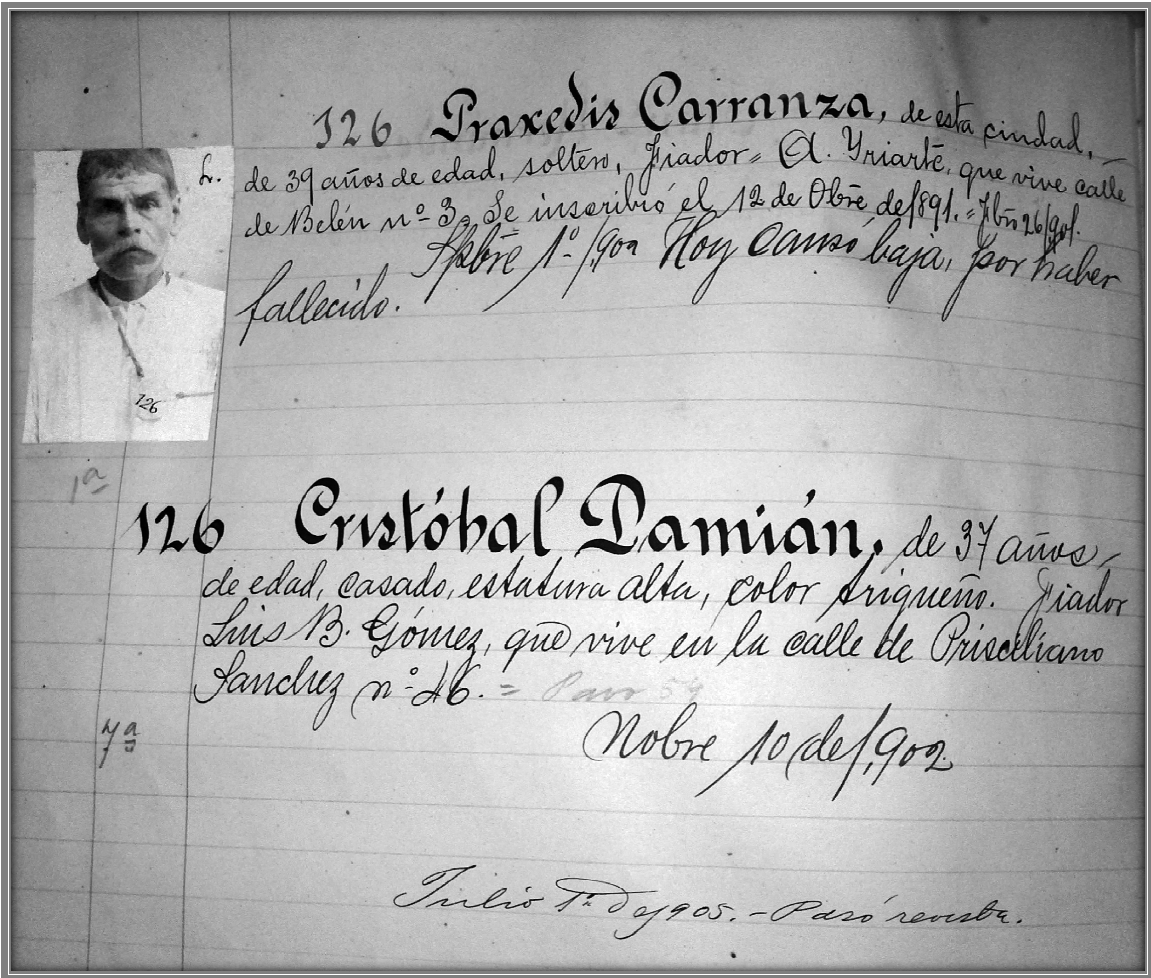 126 Praxedis Carranza, de esta ciudad, –
L. de 39 años de edad, soltero, Fiador = A. Yriarte, que vive calle
de Belén nº 3. Se inscribió el 12 de Obre de 1891. =
Spbre 1º /902 Hoy causó baja, por haber
fallecido.
126
1ª
126 Cristóbal Damián, de 37 años
de edad, casado, estatura alta, color trigueño. Fiador
Luis B. Gómez, que vive en la calle de Prisciliano
Sanchez nº 46. =
7ª
Nobre 10 de 1,902
Julio 1º De 1905. – Pasó revista.